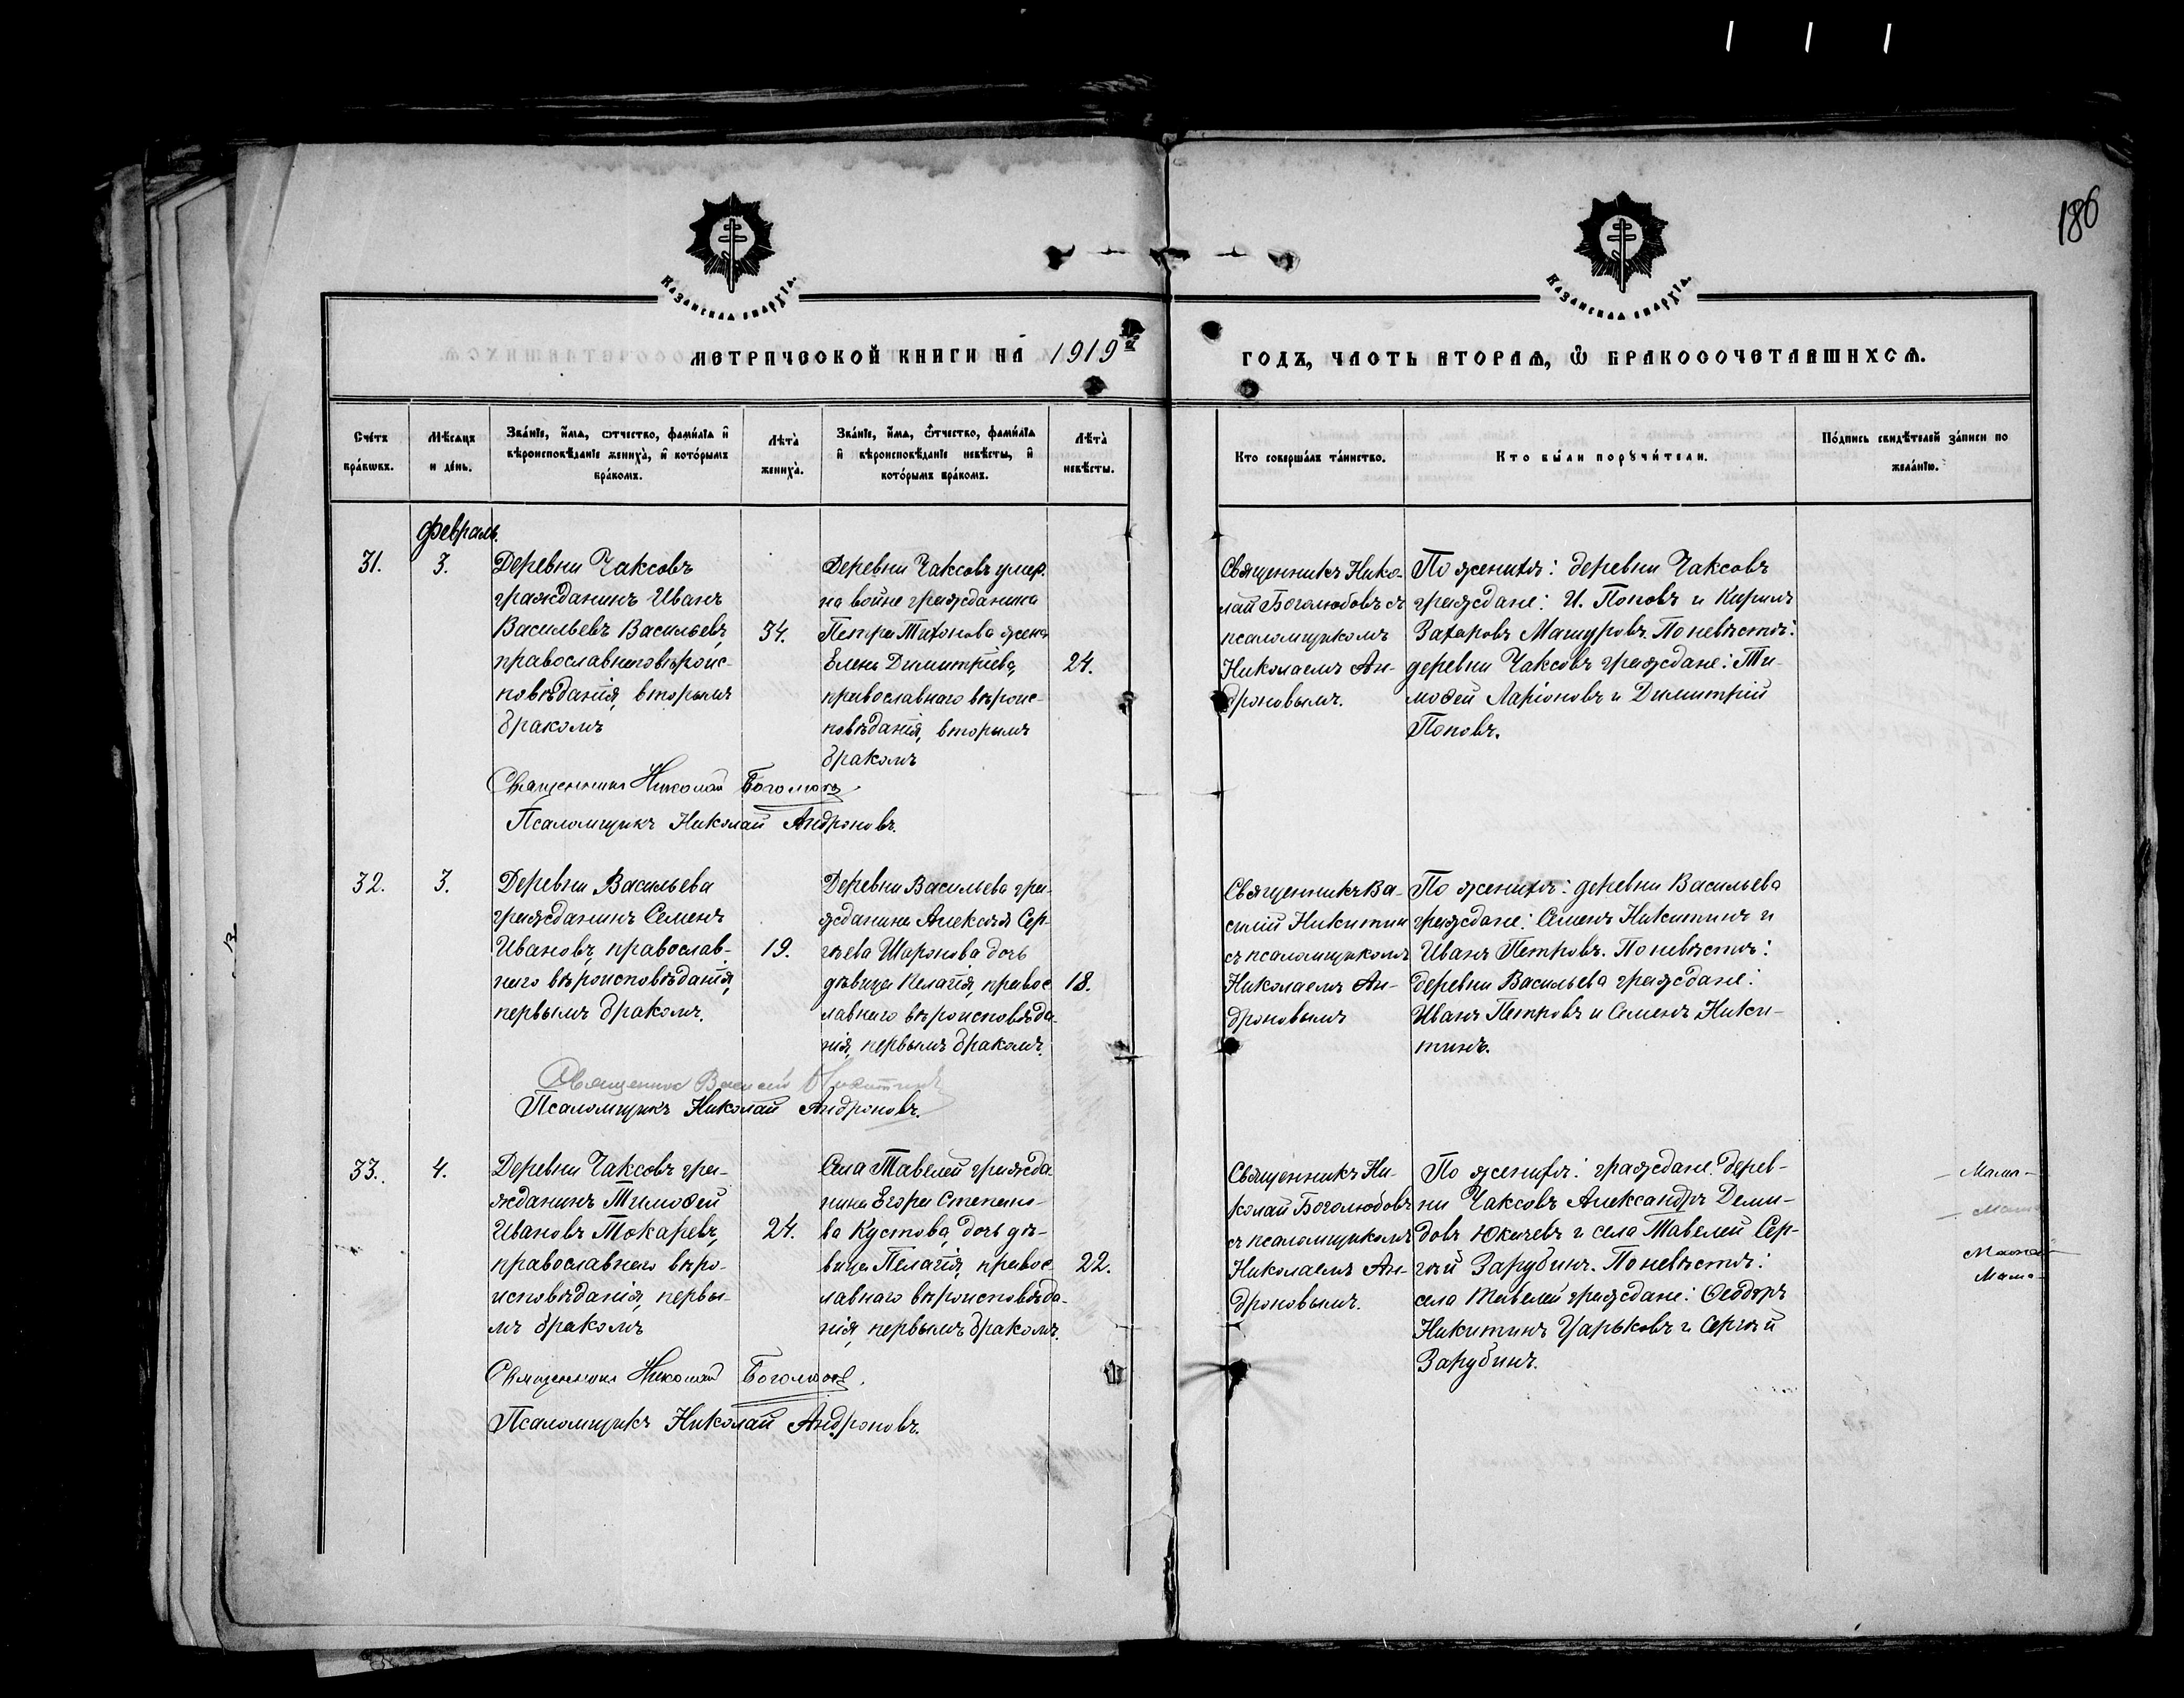 186
Казанская епархїа.
Казанская епархїа.
МЕТРИЧЕСКОЙ КНИГИ НА 1919й ГОДЪ, ЧАСТЬ ВТОРАѦ, Ѽ БРАКОСОЧЕТАВШИХСѦ.
Счетъ браковъ.
Мѣсяцъ и день.
Званіе, имя, отчество, фамилія и вѣроисповѣданіе жениха, и которымъ бракомъ.
Лѣта жениха.
Званіе, имя, отчество, фамилія и вѣроисповѣданіе невѣсты, и которымъ бракомъ.
Лѣта невѣсты.
Кто совершалъ таинство.
Кто были поручители.
Подпись свидѣтелей записи по желанію.
Февраль.
31.
3.
Деревни Чаксовъ
гражданинъ Иванъ
Васильевъ Васильевъ,
православнаго вѣроис-
повѣданія, вторымъ
бракомъ
34.
Деревни Чаксовъ умер.
на войне гражданина
Петра Тихонова жена
Елена Димитріева,
православнаго вѣроис-
повѣданія, вторымъ
бракомъ
24.
Священникъ Нико-
лай Боголюбовъ съ
псаломщикомъ
Николаемъ Ан-
дроновымъ.
По женихѣ: деревни Чаксовъ
граждане: И. Поповъ и Кирилъ
Захаровъ Машуровъ. По невѣстѣ:
деревни Чаксовъ граждане: Ти-
моѳей Ларіоновъ и Димитрій
Поповъ.
Священникъ Николай Боголюбовъ
Псаломщикъ Николай Андроновъ.
32.
3.
Деревни Васильева
гражданинъ Семенъ
Ивановъ, православ-
наго вѣроисповѣданія,
первымъ бракомъ.
19.
Деревни Васильева гра-
жданина Алексѣя Сер-
гѣева Шаронова дочь
дѣвица Пелагія, правос
лавнаго вѣроисповѣда-
нія, первымъ бракомъ.
18.
Священникъ Ва-
силій Никитин
съ псаломщикомъ
Николаемъ Ан-
дроновымъ
По женихѣ: деревни Васильева
граждане: Семенъ Никитинъ и
Иванъ Петровъ. По невѣстѣ:
деревни Васильева граждане:
Иванъ Петровъ и Семенъ Ники-
тинъ.
Священник Василій Никитинъ
Псаломщикъ Николай Андроновъ.
33.
4.
Деревни Чаксовъ гра-
жданинъ Тимоѳей
Ивановъ Токаревъ,
православнаго вѣро-
исповѣданія, первы-
мъ бракомъ
24.
Села Тавелей гражда
нина Егора Степано-
ва Кустова, дочь дѣ-
вица Пелагія, правос
лавнаго вѣроисповѣда-
нія, первымъ бракомъ.
22.
Священникъ Ни-
колай Боголюбовъ
съ псаломщикомъ
Николаемъ Ан-
дроновымъ.
По женихѣ: граждане дерев-
ни Чаксовъ Александръ Деми-
довъ Юкачевъ и села Тавелей Сер-
гѣй Зарубинъ. По невѣстѣ:
села Тавелей граждане: Ѳеодоръ
Никитинъ Царьковъ и Сергѣй
Зарубинъ.
Священникъ Николай Боголюбовъ.
Псаломщикъ Николай Андроновъ.